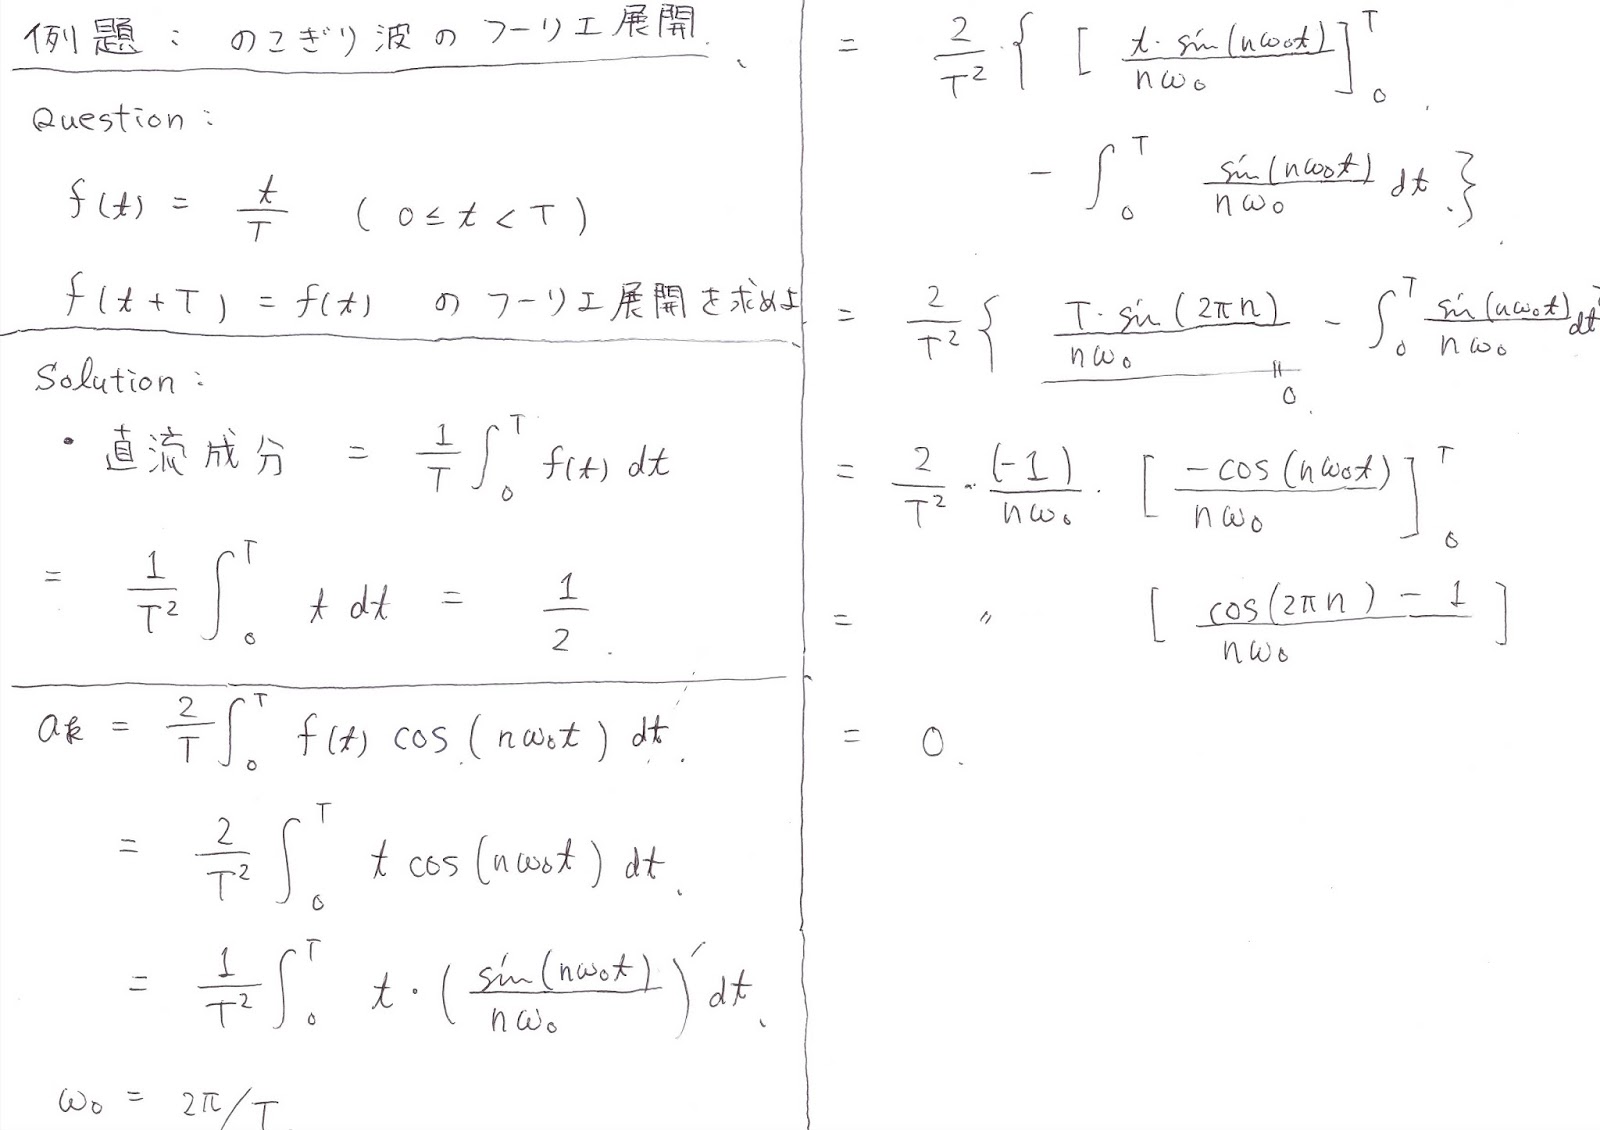 例題: のこぎり波のフーリエ展開.
Question:
f(t) = t/T (0 ≤ t < T)
f(t+T) = f(t) のフーリエ展開を求めよ
Solution:
・直流成分 = 1/T ∫₀ᵀ f(t) dt
= 1/T² ∫₀ᵀ t dt = 1/2.
ak = 2/T ∫₀ᵀ f(t) cos(nω₀t) dt.
= 2/T² ∫₀ᵀ t cos(nω₀t) dt.
= 1/T² ∫₀ᵀ t・(sin(nω₀t)/nω₀)′ dt.
ω₀ = 2π/T
= 2/T²・{ [ t・sin(nω₀t)/nω₀ ]₀ᵀ
- ∫₀ᵀ sin(nω₀t)/nω₀ dt.}
= 2/T² { T・sin(2πn)/nω₀ - ∫₀ᵀ sin(nω₀t)/nω₀ dt
= 0.
= 2/T²・(-1)/nω₀・[ -cos(nω₀t)/nω₀ ]₀ᵀ
= 〃 [ cos(2πn) - 1/nω₀ ]
= 0.